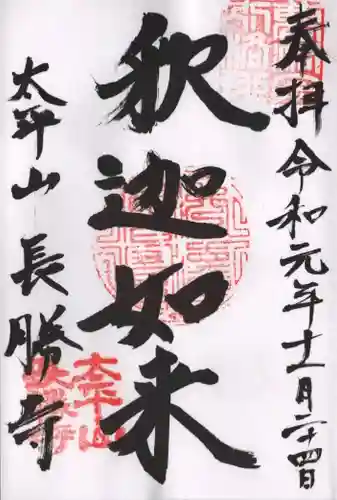 奉拝 令和元年十二月二十四日
釈迦如来
太平山 長勝寺
太平山